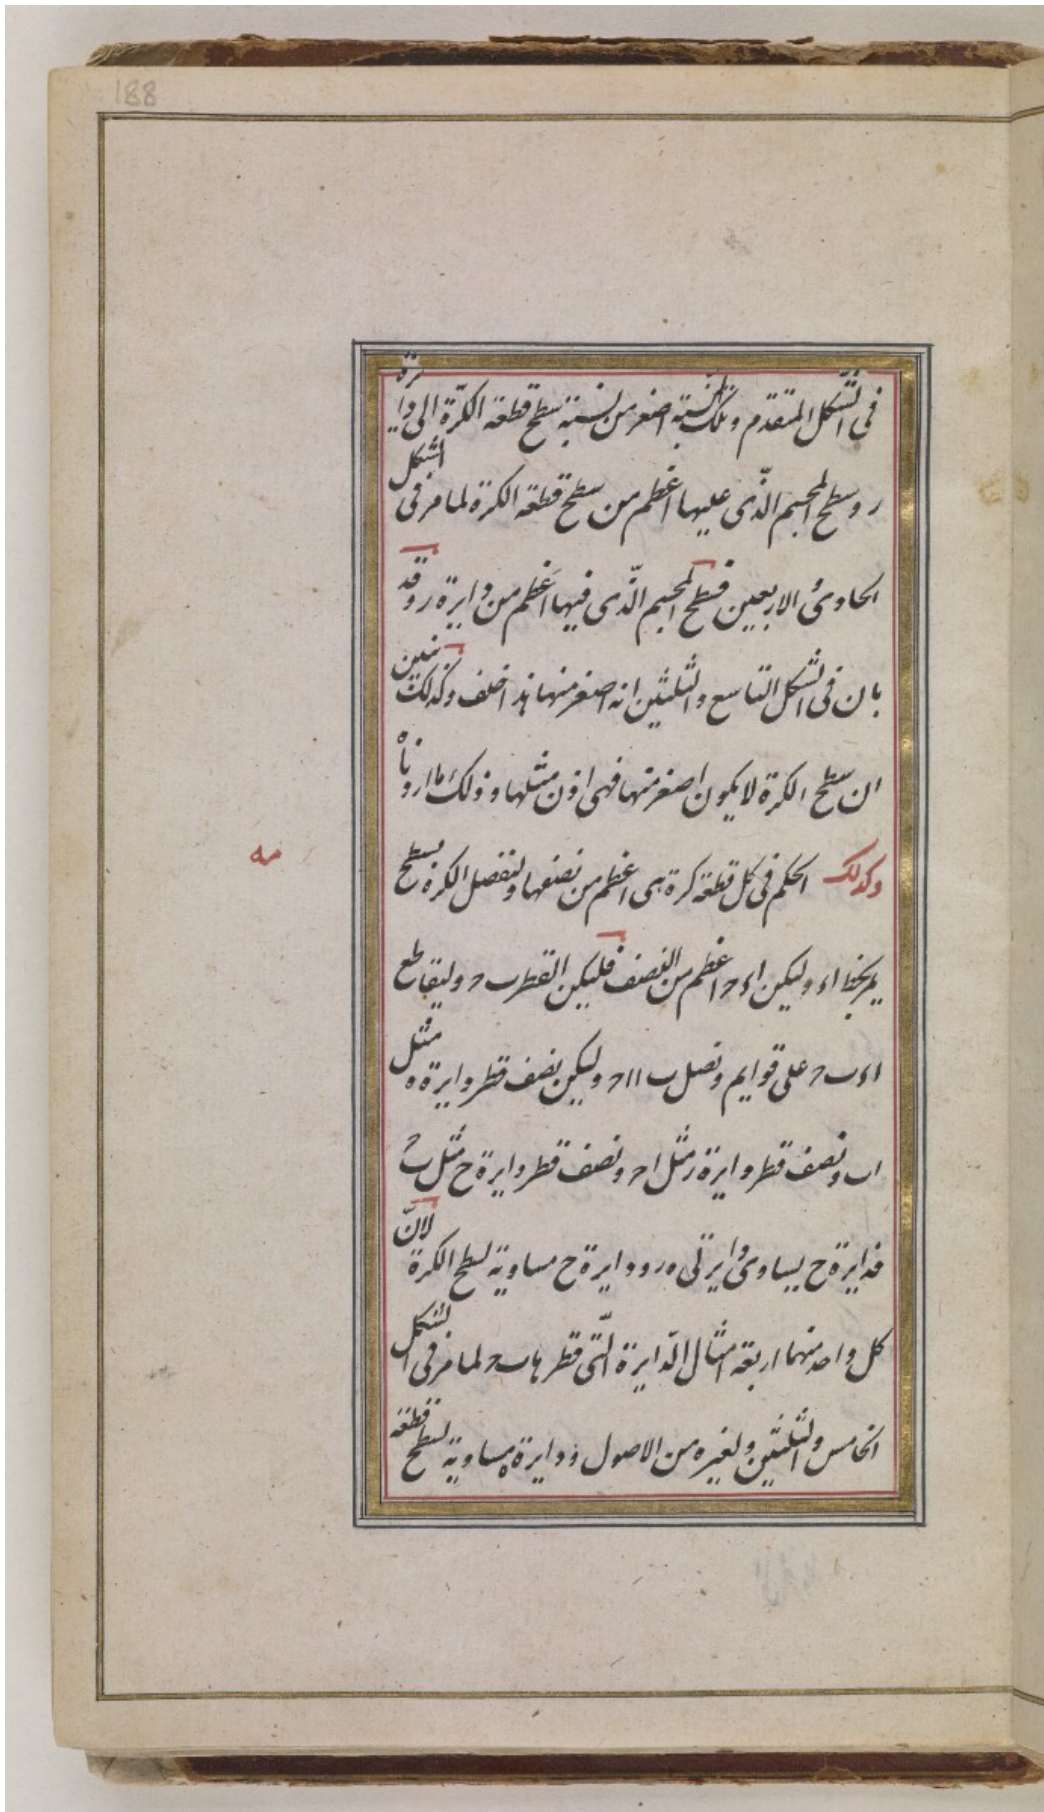 188
في الشكل المتقدم وتلك النسبة اصغر من نسبة سطح قطعة الكرة الى دايرة
ر وسطح المجسم الذي عليها اعظم من سطح قطعة الكرة لما مر في الشكل
الحاوي والاربعين فسطح المجسم الذي فيها اعظم من دايرة ر وقد
بان في الشكل التاسع والثلثين انه اصغر منها هذا خلف وكذلك نبين
ان سطح الكرة لا يكون اصغر منها فهي اذن مثلها وذلك ما اردناه
وكذلك الحكم في كل قطعة كرة هي اعظم من نصفها ولنفصل الكرة بسطح
مه
يمر بخط اء وليكن اءح اعظم من النصف فليكن القطر ب ح وليقاطع
اء ب ح على قوايم ونصل ب ا اح وليكن نصف قطر دايرة ه مثل
اب ونصف قطر دايرة ر مثل اح ونصف قطر دايرة ح مثل ب ح
فدايرة ح يساوي دايرتي ه ر ودايرة ح مساوية لسطح الكرة لان
كل واحد منهما اربعة امثال الدايرة التي قطرها ب ح لما مر في الشكل
الخامس والثلثين ولغيره من الاصول ودايرة ه مساوية لسطح قطعة